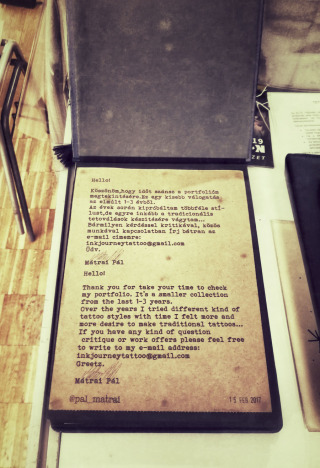 Hello!
Köszönöm,hogy időt szánsz a portfólióm
megtekintésére.Ez egy kisebb válogatás
az elmúlt 1-3 évből.
Az évek során kipróbáltam többféle stí-
lust,de egyre inkább a tradicionális
tetoválások készítésére vágytam...
Bármilyen kérdéssel kritikával, közös
munkával kapcsolatban írj bátran az
e-mail címemre:
inkjourneytattoo@gmail.com
Üdv.
Mátrai Pál
Hello!
Thank you for take your time to check
my portfolio. It's a smaller collection
from the last 1-3 years.
Over the years I tried different kind of
tattoo styles with time I felt more and
more desire to make traditional tattoos...
If you have any kind of question
critique or work offers please feel free
to write to my e-mail address:
inkjourneytattoo@gmail.com
Greetz.
Mátrai Pál
@pal_matrai
15 FEB 2017
19
ZET